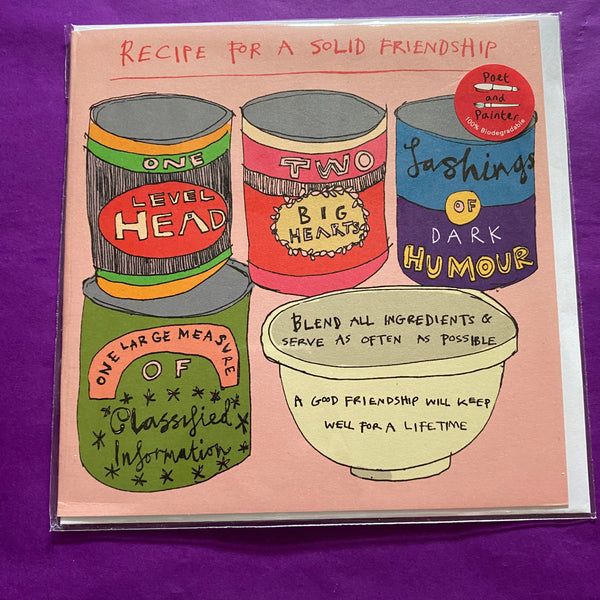 RECIPE FOR A SOLID FRIENDSHIP
Poet
and
Painter
100% Biodegradable
ONE
LEVEL
HEAD
TWO
BIG
HEARTS
Lashings
OF
DARK
HUMOUR
ONE LARGE MEASURE
OF
Classified
Information
BLEND ALL INGREDIENTS &
SERVE AS OFTEN AS POSSIBLE
A GOOD FRIENDSHIP WILL KEEP
WELL FOR A LIFETIME